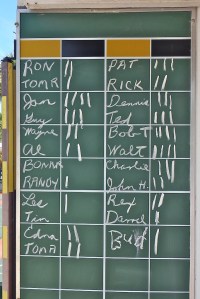 RON || PAT |||
TOM R | RICK ||
Jon |||| Dennis
Guy Ted
Wayne Bob T
al Walt
BONNR Charlie
RANDY | John H.
Lee | Rex
Tim | Darrel
Edna Bud
TOM